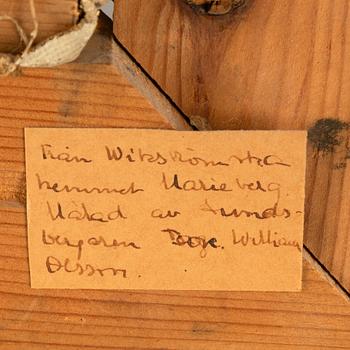 Från Wikströmska
hemmet Marieberg.
Målad av Sunds-
bergaren Tage. William
Olsson.